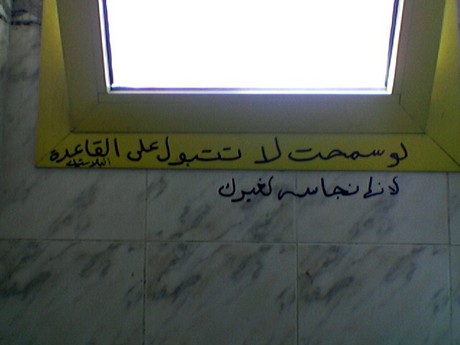 لو سمحت لا تتبول على القاعدة
البلاستيك
لانها نجاسه لغيرك